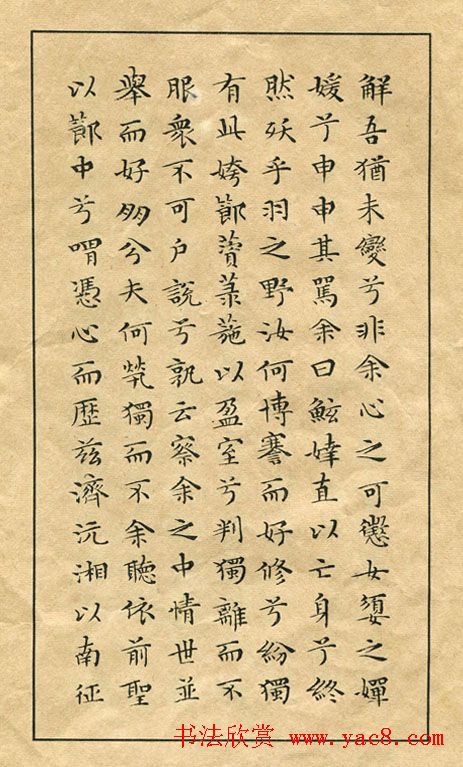 觧吾猶未變兮非余心之可懲女嬃之嬋
媛兮申申其罵余曰鮌婞直以亡身兮終
然殀乎羽之野汝何博謇而好修兮紛獨
有此姱節薋菉葹以盈室兮判獨離而不
服衆不可户說兮孰云察余之中情世並
舉而好朋兮夫何煢獨而不余聽依前聖
以節中兮喟憑心而歷兹濟沅湘以南征
书法欣赏 www.yac8.com